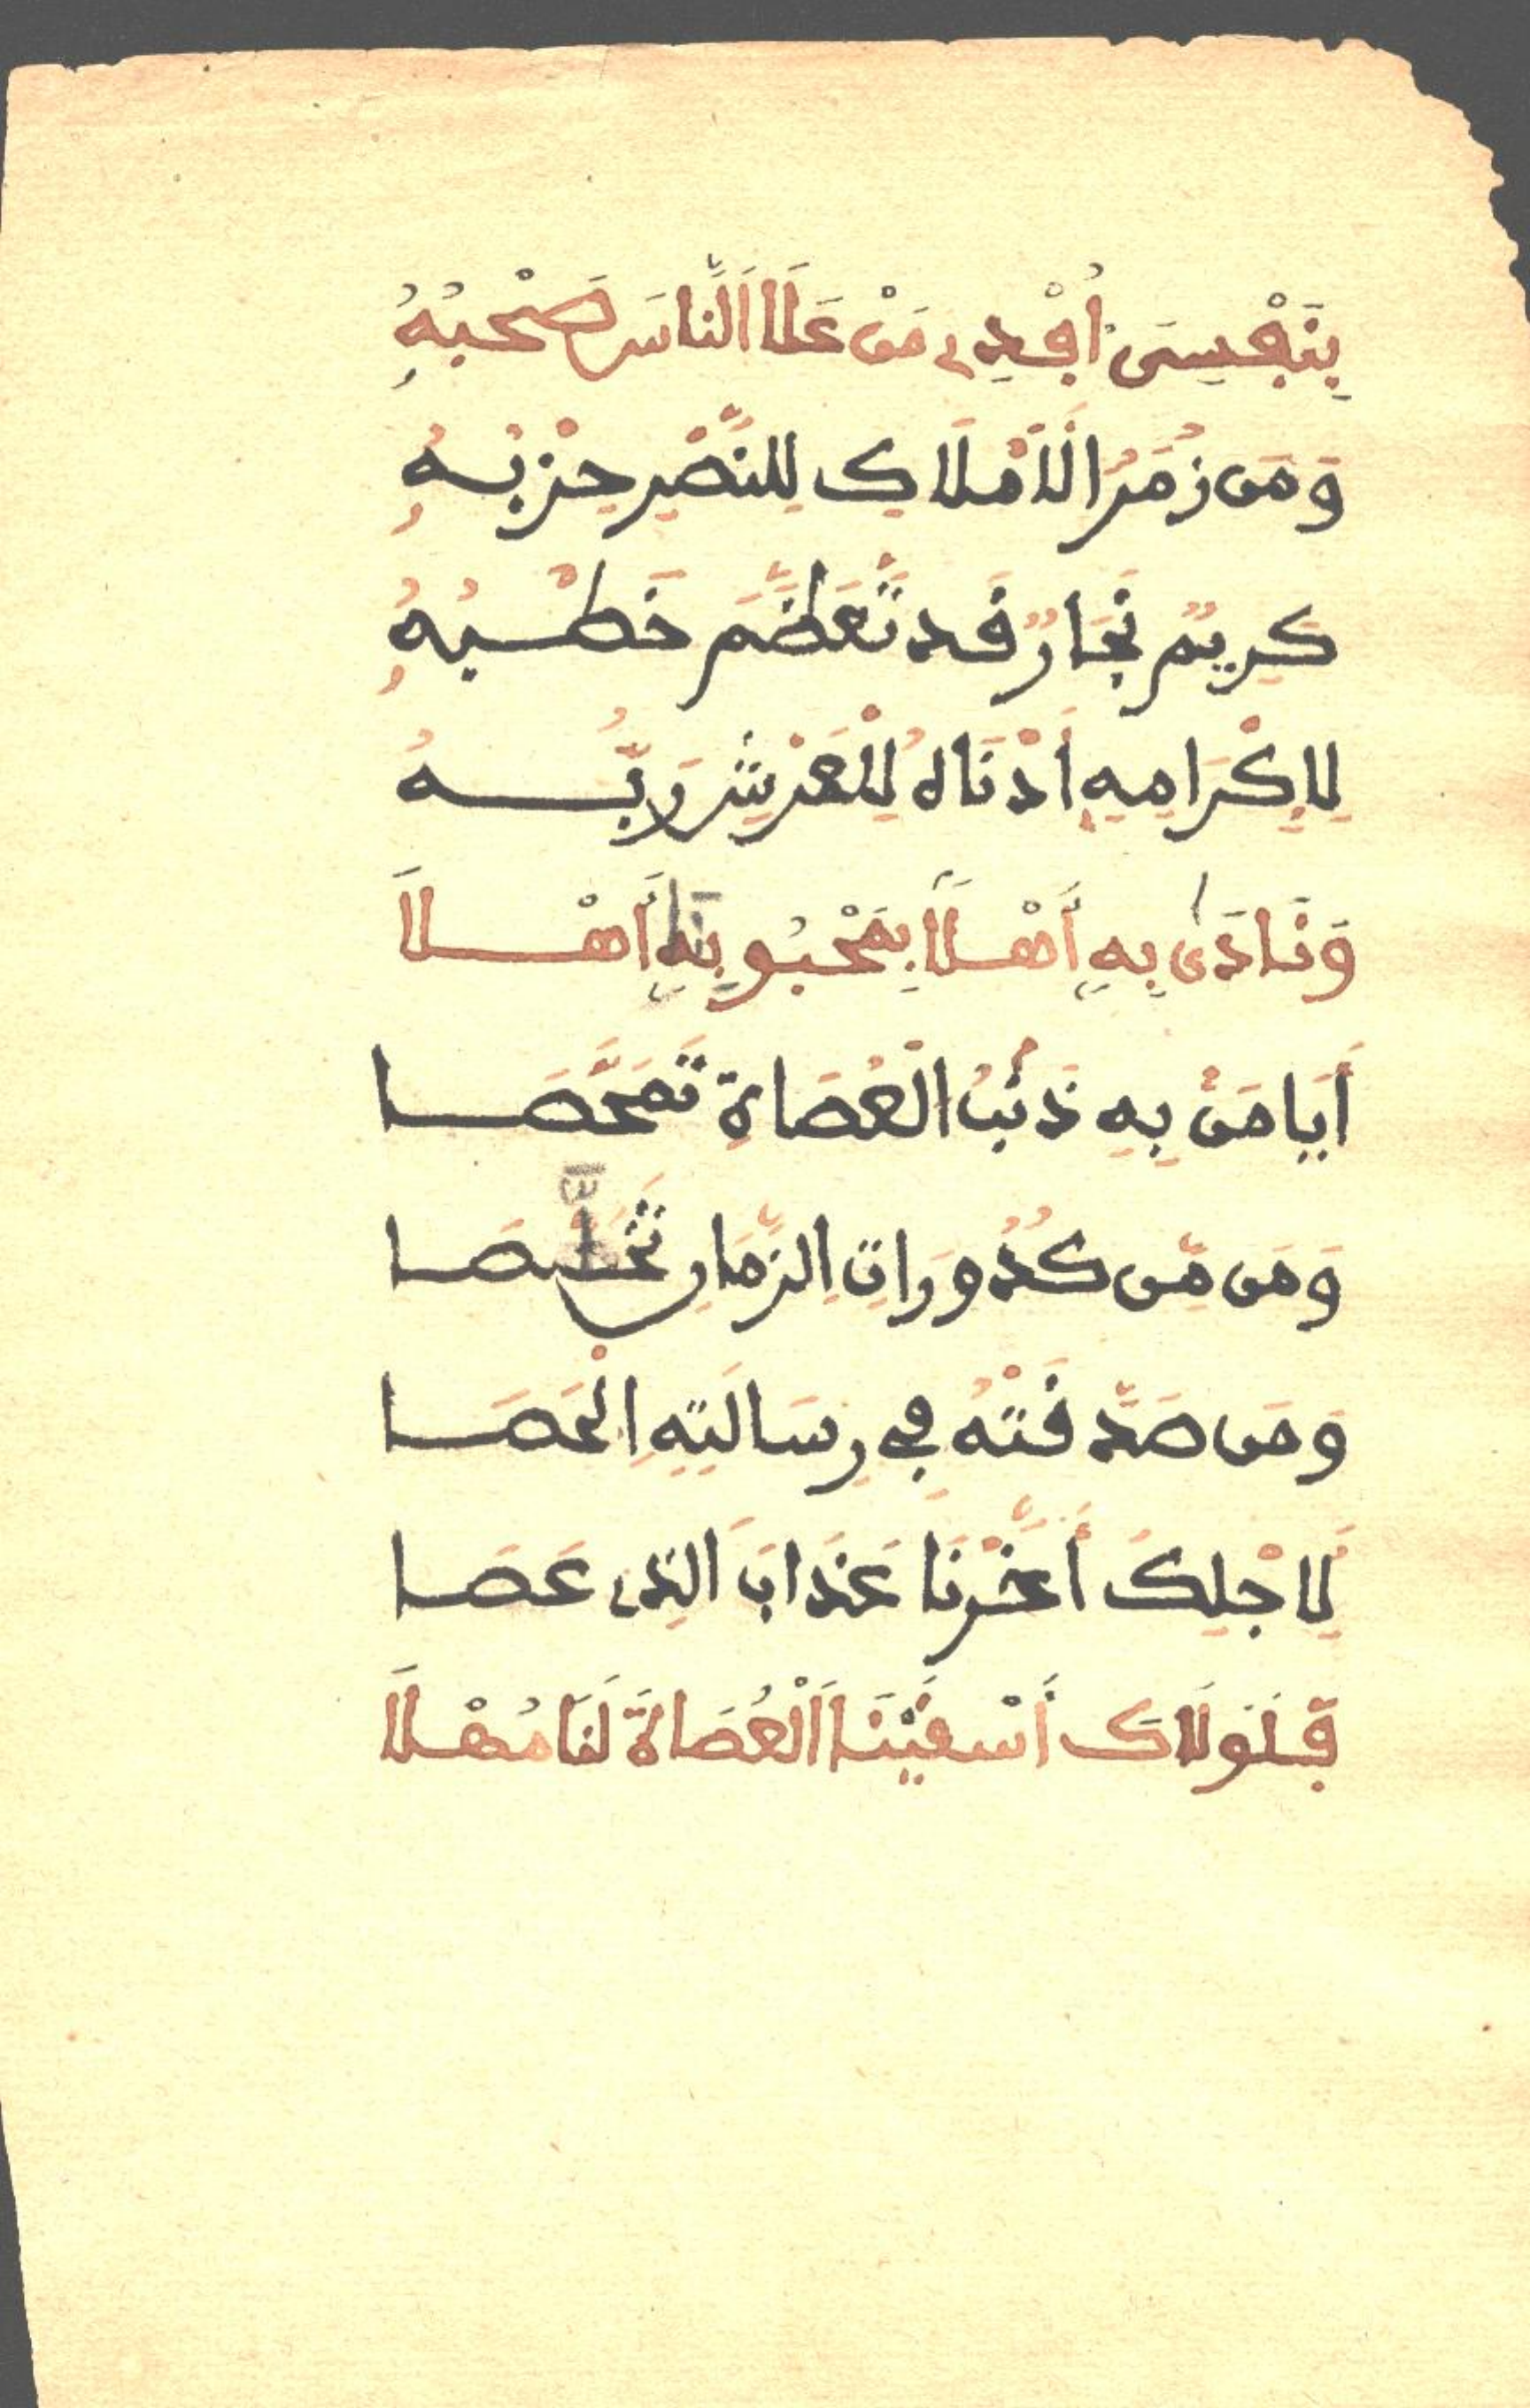 بِنَفْسِىَ أُفْدِى مَنْ عَلَا النَّاسَ صَحْبُهُ
وَمَن زُمَرُ الَامْلَاكِ لِلنَّصْرِ حِزْبُهُ
كَرِيمٌ نِجَارٌ قَد تَّعَظَّمَ خَطْبُهُ
لِإِكْرَامِهِ أَدْنَاهُ لِلْعَرْشِ رَبُّهُ
وَنَادَىٰ بِهِ أَهْلًا بِمَحْبُوبِنَا أَهْلَا
أَيَا مَنْ بِهِ ذَنْبُ الْعُصَاةِ تَمَحَّصَا
وَمَن مِّن كُدُورَاتِ الزَّمَانِ تَخَلَّصَا
وَمَن صَدَّقَتْهُ فِي رِسَالَتِهِ الْحَصَا
لِاَجْلِكَ أَخَّرْنَا عَذَابَ الَّذِى عَصَا
فَلَوْلَاكَ أَسْقَيْنَا الْعُصَاةَ لَنَا مُهْلَا